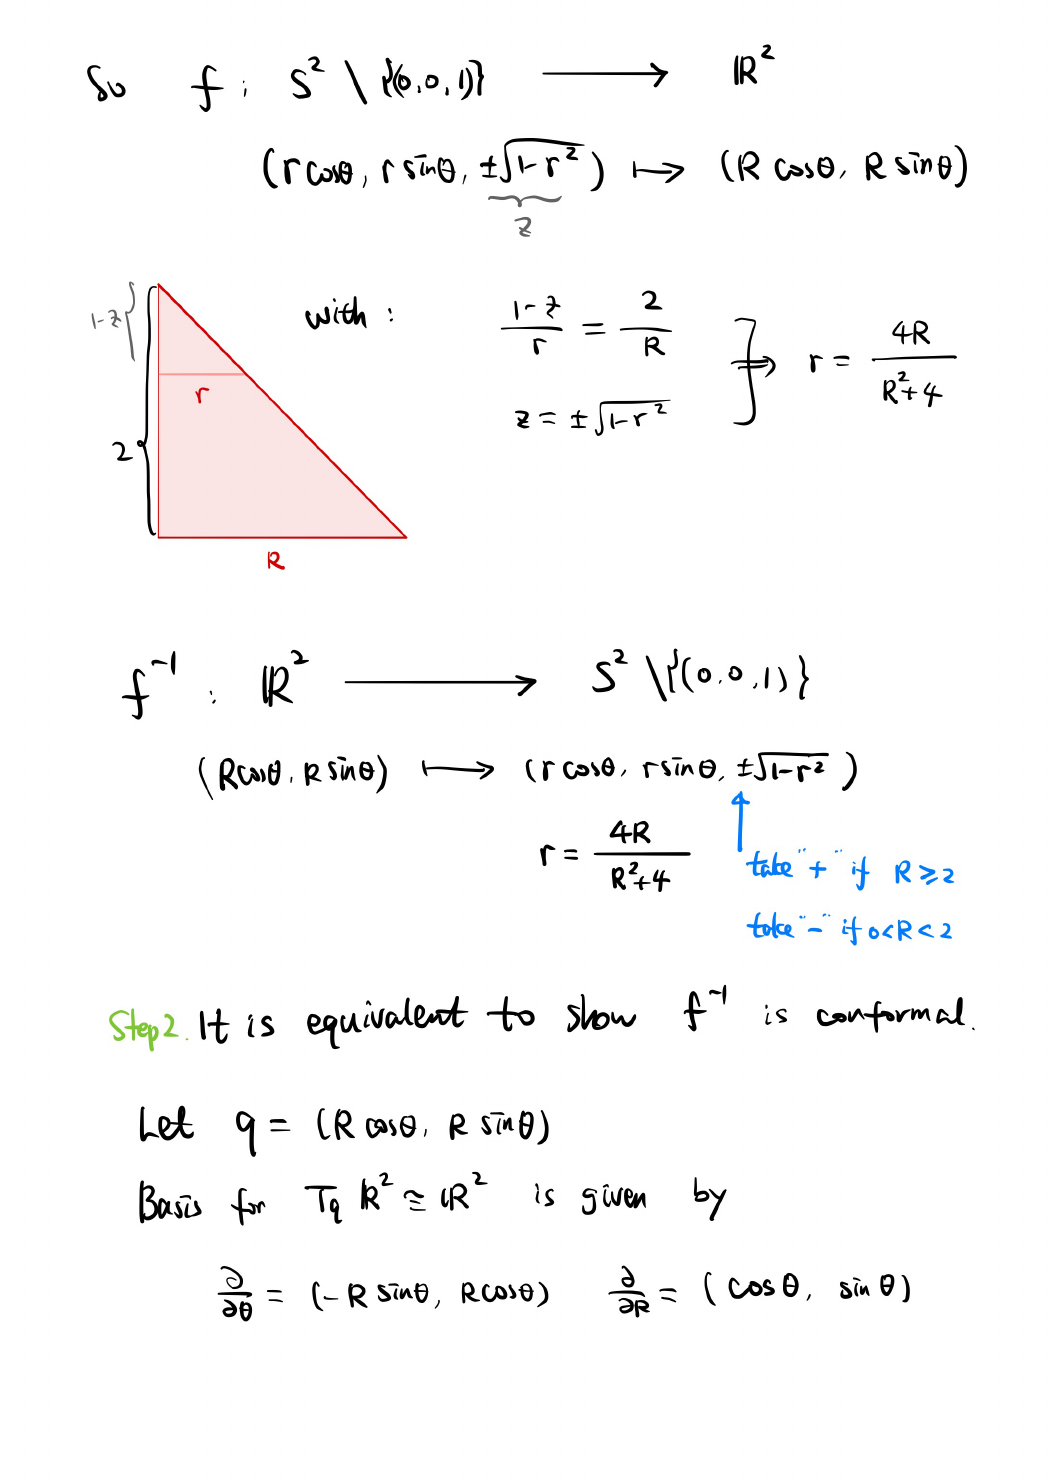 So f : S² \ {(0,0,1)} ⟶ ℝ²
(r cosθ, r sinθ, ±√(1-r²)) ↦ (R cosθ, R sinθ)
z
1-z
with :
(1-z)/r = 2/R
z = ±√(1-r²)
⇒ r = 4R/(R²+4)
r
2
R
f⁻¹ : ℝ² ⟶ S² \ {(0,0,1)}
(R cosθ, R sinθ) ⟼ (r cosθ, r sinθ, ±√(1-r²))
r = 4R/(R²+4)
take "+" if R ⩾ 2
take "-" if 0<R<2
Step 2. It is equivalent to show f⁻¹ is conformal.
Let q = (R cosθ, R sinθ)
Basis for T_q ℝ² ≅ ℝ² is given by
∂/∂θ = (-R sinθ, R cosθ) ∂/∂R = (cosθ, sinθ)